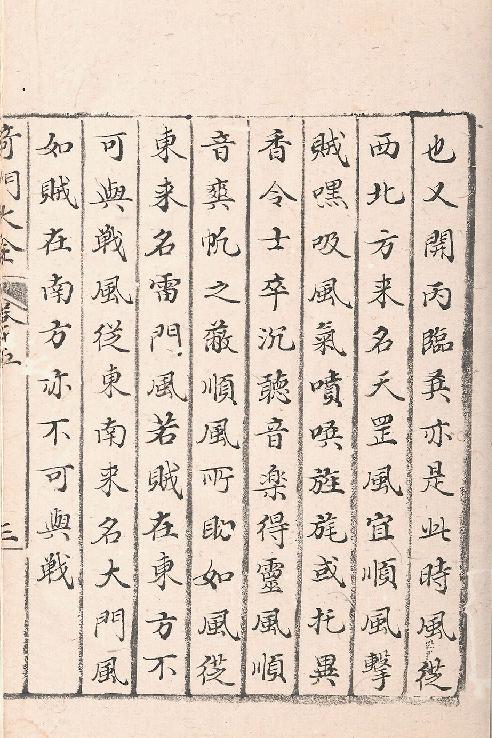 也又開丙臨庚亦是此時風從
西北方来名天罡風宜順風擊
賊嘿吸風氣噴喚旌旄或托異
香令士卒沉聽音楽得靈風順
音與帆之敵順風所助如風從
東来名雷門風若賊在東方不
可與戦風従東南来名大門風
如賊在南方亦不可與戦
奇門大全
三